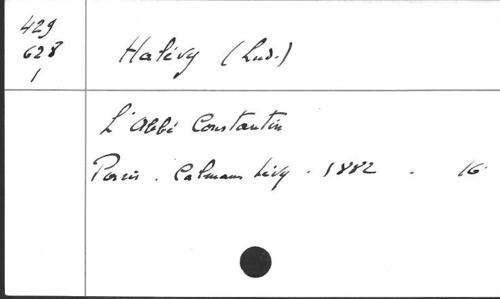 429
628
1
Halévy (Lud.)
L'Abbé Constantin
Paris. Calmann Lévy. 1882. 16